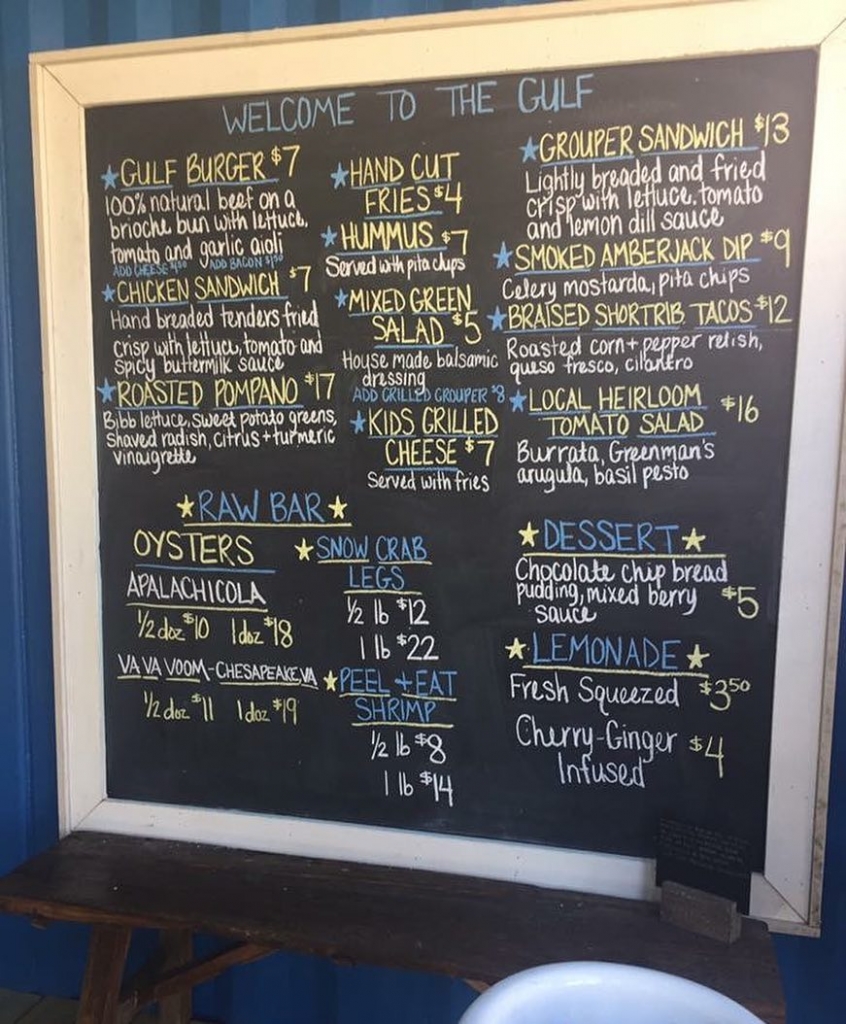 WELCOME TO THE GULF
GULF BURGER $7
100% natural beef on a
brioche bun with lettuce,
tomato and garlic aioli
ADD CHEESE $1.50 ADD BACON $1.50
CHICKEN SANDWICH $7
Hand breaded tenders fried
crisp with lettuce, tomato and
spicy buttermilk sauce
ROASTED POMPANO $17
Bibb lettuce, sweet potato greens,
shaved radish, citrus + turmeric
vinaigrette
HAND CUT
FRIES $4
HUMMUS $7
Served with pita chips
MIXED GREEN
SALAD $5
House made balsamic
dressing
ADD GRILLED GROUPER $8
KIDS GRILLED
CHEESE $7
Served with fries
GROUPER SANDWICH $13
Lightly breaded and fried
crisp with lettuce, tomato
and lemon dill sauce
SMOKED AMBERJACK DIP $9
Celery mostarda, pita chips
BRAISED SHORTRIB TACOS $12
Roasted corn + pepper relish,
queso fresco, cilantro
LOCAL HEIRLOOM
TOMATO SALAD $16
Burrata, Greenman's
arugula, basil pesto
RAW BAR
OYSTERS
APALACHICOLA
1/2 doz $10 1 doz $18
VA VA VOOM - CHESAPEAKE, VA
1/2 doz $11 1 doz $19
SNOW CRAB
LEGS
1/2 lb $12
1 lb $22
PEEL + EAT
SHRIMP
1/2 lb $8
1 lb $14
DESSERT
Chocolate chip bread
pudding, mixed berry
sauce $5
LEMONADE
Fresh Squeezed $3.50
Cherry-Ginger $4
Infused